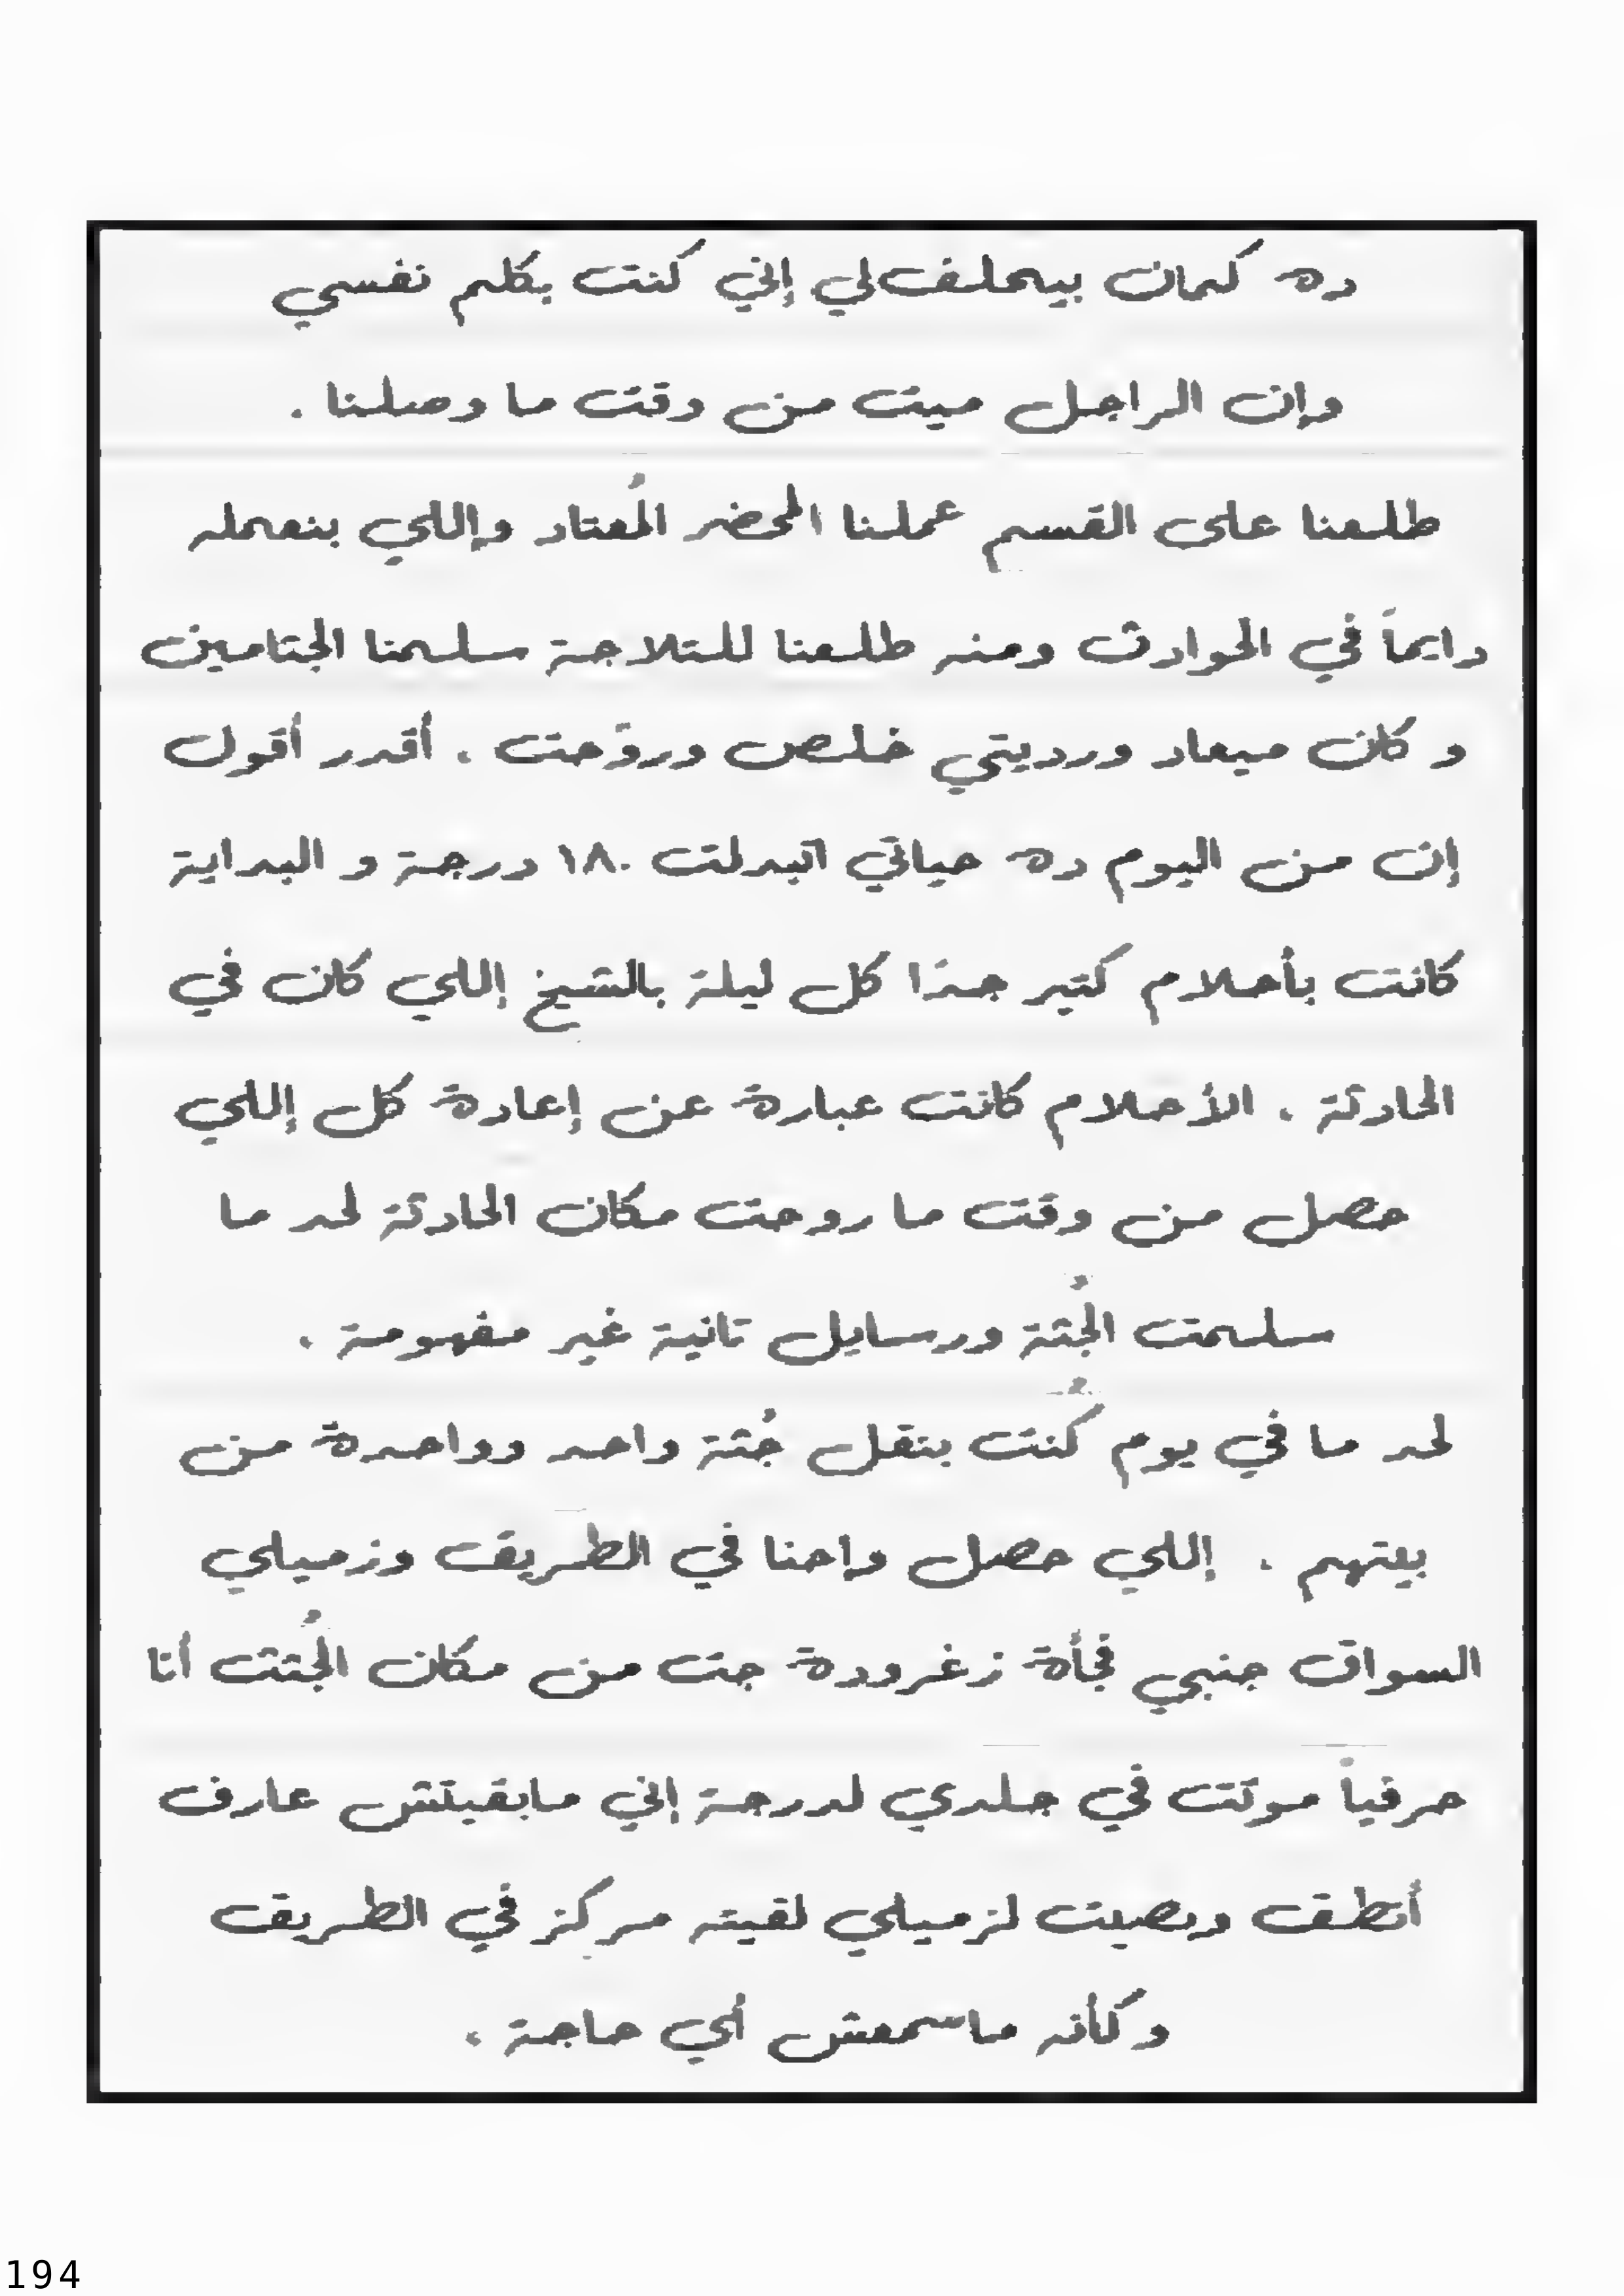 ده كمان بيحلف لي إني كنت بكلم نفسي
وإن الراجل ميت من وقت ما وصلنا .
طلعنا على القسم عملنا المحضر المُعتاد وإللي بنعمله
دايماً في الحوادث ومنه طلعنا للتلاجة سلمنا الجثامين
و كان ميعاد ورديتي خلص وروّحت . أقدر أقول
إن من اليوم ده حياتي اتبدلت ١٨٠ درجة و البداية
كانت بأحلام كتير جدًا كل ليلة بالشيخ إللي كان في
الحادثة . الأحلام كانت عبارة عن إعادة كل إللي
حصل من وقت ما روحت مكان الحادثة لحد ما
سلمت الجُثة ورسايل تانية غير مفهومة .
لحد ما في يوم كُنت بنقل جُثة واحد وواحدة من
بيتهم . إللي حصل وإحنا في الطريق وزميلي
السواق جنبي فجأة زغرودة جت من مكان الجُثث أنا
حرفياً موتت في جلدي لدرجة إني مابقيتش عارف
أنطق وبصيت لزميلي لقيته مركز في الطريق
وكأنه ماسمعش أي حاجة .
194